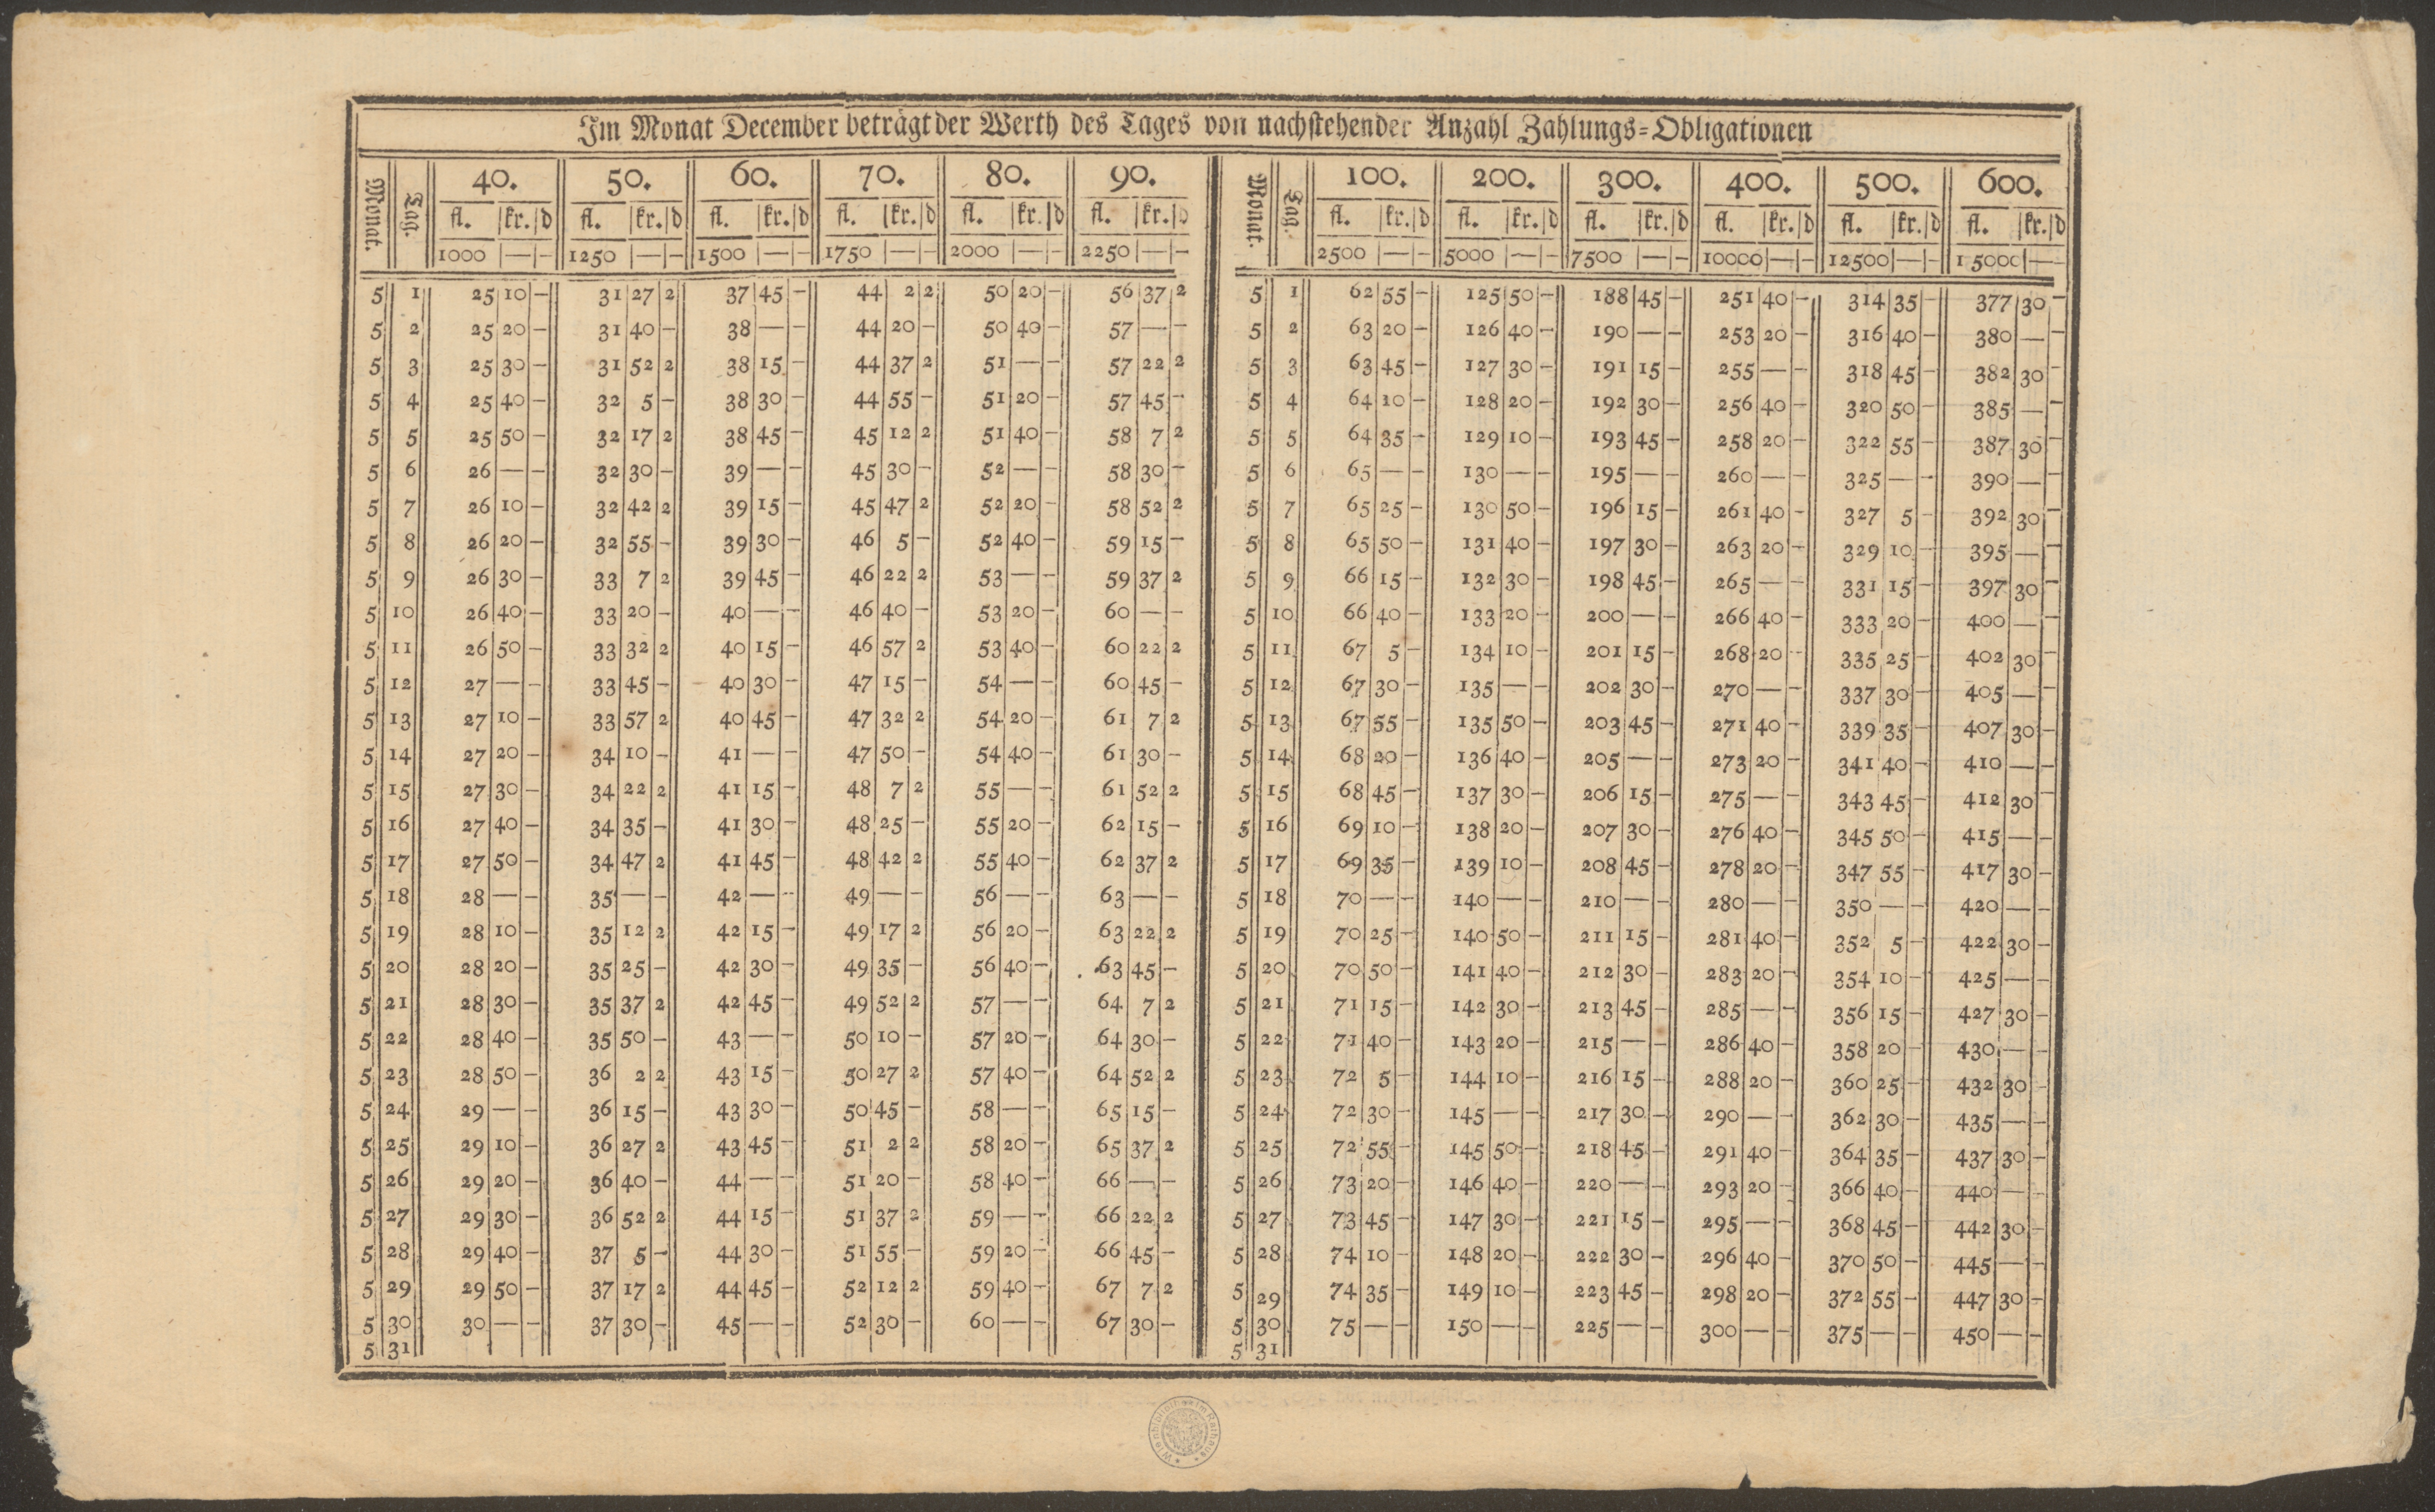 Im Monat December beträgt der Werth des Tages von nachstehender Anzahl Zahlungs=Obligationen
Monat. | Tag. | 40. | 50. | 60. | 70. | 80. | 90. | Monat. | Tag. | 100. | 200. | 300. | 400. | 500. | 600.
fl. |kr.|d | fl. |kr.|d | fl. |kr.|d | fl. |kr.|d | fl. |kr.|d | fl. |kr.|d | fl. |kr.|d | fl. |kr.|d | fl. |kr.|d | fl. |kr.|d | fl. |kr.|d | fl. |kr.|d
1000 — – | 1250 — – | 1500 — – | 1750 — – | 2000 — – | 2250 — – | 2500 — – | 5000 — – | 7500 — – | 10000 — – | 12500 — – | 15000 — –
5 1 | 25 10 – | 31 27 2 | 37 45 – | 44 2 2 | 50 20 – | 56 37 2 | 5 1 | 62 55 – | 125 50 – | 188 45 – | 251 40 – | 314 35 – | 377 30 –
5 2 | 25 20 – | 31 40 – | 38 — – | 44 20 – | 50 40 – | 57 — – | 5 2 | 63 20 – | 126 40 – | 190 — – | 253 20 – | 316 40 – | 380 — –
5 3 | 25 30 – | 31 52 2 | 38 15 – | 44 37 2 | 51 — – | 57 22 2 | 5 3 | 63 45 – | 127 30 – | 191 15 – | 255 — – | 318 45 – | 382 30 –
5 4 | 25 40 – | 32 5 – | 38 30 – | 44 55 – | 51 20 – | 57 45 – | 5 4 | 64 10 – | 128 20 – | 192 30 – | 256 40 – | 320 50 – | 385 — –
5 5 | 25 50 – | 32 17 2 | 38 45 – | 45 12 2 | 51 40 – | 58 7 2 | 5 5 | 64 35 – | 129 10 – | 193 45 – | 258 20 – | 322 55 – | 387 30 –
5 6 | 26 — – | 32 30 – | 39 — – | 45 30 – | 52 — – | 58 30 – | 5 6 | 65 — – | 130 — – | 195 — – | 260 — – | 325 — – | 390 — –
5 7 | 26 10 – | 32 42 2 | 39 15 – | 45 47 2 | 52 20 – | 58 52 2 | 5 7 | 65 25 – | 130 50 – | 196 15 – | 261 40 – | 327 5 – | 392 30 –
5 8 | 26 20 – | 32 55 – | 39 30 – | 46 5 – | 52 40 – | 59 15 – | 5 8 | 65 50 – | 131 40 – | 197 30 – | 263 20 – | 329 10 – | 395 — –
5 9 | 26 30 – | 33 7 2 | 39 45 – | 46 22 2 | 53 — – | 59 37 2 | 5 9 | 66 15 – | 132 30 – | 198 45 – | 265 — – | 331 15 – | 397 30 –
5 10 | 26 40 – | 33 20 – | 40 — – | 46 40 – | 53 20 – | 60 — – | 5 10 | 66 40 – | 133 20 – | 200 — – | 266 40 – | 333 20 – | 400 — –
5 11 | 26 50 – | 33 32 2 | 40 15 – | 46 57 2 | 53 40 – | 60 22 2 | 5 11 | 67 5 – | 134 10 – | 201 15 – | 268 20 – | 335 25 – | 402 30 –
5 12 | 27 — – | 33 45 – | 40 30 – | 47 15 – | 54 — – | 60 45 – | 5 12 | 67 30 – | 135 — – | 202 30 – | 270 — – | 337 30 – | 405 — –
5 13 | 27 10 – | 33 57 2 | 40 45 – | 47 32 2 | 54 20 – | 61 7 2 | 5 13 | 67 55 – | 135 50 – | 203 45 – | 271 40 – | 339 35 – | 407 30 –
5 14 | 27 20 – | 34 10 – | 41 — – | 47 50 – | 54 40 – | 61 30 – | 5 14 | 68 20 – | 136 40 – | 205 — – | 273 20 – | 341 40 – | 410 — –
5 15 | 27 30 – | 34 22 2 | 41 15 – | 48 7 2 | 55 — – | 61 52 2 | 5 15 | 68 45 – | 137 30 – | 206 15 – | 275 — – | 343 45 – | 412 30 –
5 16 | 27 40 – | 34 35 – | 41 30 – | 48 25 – | 55 20 – | 62 15 – | 5 16 | 69 10 – | 138 20 – | 207 30 – | 276 40 – | 345 50 – | 415 — –
5 17 | 27 50 – | 34 47 2 | 41 45 – | 48 42 2 | 55 40 – | 62 37 2 | 5 17 | 69 35 – | 139 10 – | 208 45 – | 278 20 – | 347 55 – | 417 30 –
5 18 | 28 — – | 35 — – | 42 — – | 49 — – | 56 — – | 63 — – | 5 18 | 70 — – | 140 — – | 210 — – | 280 — – | 350 — – | 420 — –
5 19 | 28 10 – | 35 12 2 | 42 15 – | 49 17 2 | 56 20 – | 63 22 2 | 5 19 | 70 25 – | 140 50 – | 211 15 – | 281 40 – | 352 5 – | 422 30 –
5 20 | 28 20 – | 35 25 – | 42 30 – | 49 35 – | 56 40 – | 63 45 – | 5 20 | 70 50 – | 141 40 – | 212 30 – | 283 20 – | 354 10 – | 425 — –
5 21 | 28 30 – | 35 37 2 | 42 45 – | 49 52 2 | 57 — – | 64 7 2 | 5 21 | 71 15 – | 142 30 – | 213 45 – | 285 — – | 356 15 – | 427 30 –
5 22 | 28 40 – | 35 50 – | 43 — – | 50 10 – | 57 20 – | 64 30 – | 5 22 | 71 40 – | 143 20 – | 215 — – | 286 40 – | 358 20 – | 430 — –
5 23 | 28 50 – | 36 2 2 | 43 15 – | 50 27 2 | 57 40 – | 64 52 2 | 5 23 | 72 5 – | 144 10 – | 216 15 – | 288 20 – | 360 25 – | 432 30 –
5 24 | 29 — – | 36 15 – | 43 30 – | 50 45 – | 58 — – | 65 15 – | 5 24 | 72 30 – | 145 — – | 217 30 – | 290 — – | 362 30 – | 435 — –
5 25 | 29 10 – | 36 27 2 | 43 45 – | 51 2 2 | 58 20 – | 65 37 2 | 5 25 | 72 55 – | 145 50 – | 218 45 – | 291 40 – | 364 35 – | 437 30 –
5 26 | 29 20 – | 36 40 – | 44 — – | 51 20 – | 58 40 – | 66 — – | 5 26 | 73 20 – | 146 40 – | 220 — – | 293 20 – | 366 40 – | 440 — –
5 27 | 29 30 – | 36 52 2 | 44 15 – | 51 37 2 | 59 — – | 66 22 2 | 5 27 | 73 45 – | 147 30 – | 221 15 – | 295 — – | 368 45 – | 442 30 –
5 28 | 29 40 – | 37 5 – | 44 30 – | 51 55 – | 59 20 – | 66 45 – | 5 28 | 74 10 – | 148 20 – | 222 30 – | 296 40 – | 370 50 – | 445 — –
5 29 | 29 50 – | 37 17 2 | 44 45 – | 52 12 2 | 59 40 – | 67 7 2 | 5 29 | 74 35 – | 149 10 – | 223 45 – | 298 20 – | 372 55 – | 447 30 –
5 30 | 30 — – | 37 30 – | 45 — – | 52 30 – | 60 — – | 67 30 – | 5 30 | 75 — – | 150 — – | 225 — – | 300 — – | 375 — – | 450 — –
5 31 | 5 31
Wienbibliothek im Rathaus